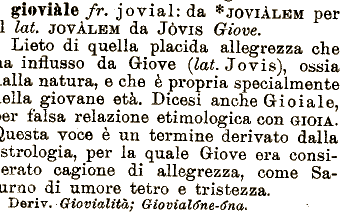 gioviàle fr. jovial: da *JOVIÀLEM per
l lat. JOVÀLEM da JÒVIS Giove.
Lieto di quella placida allegrezza che
a influsso da Giove (lat. Jovis), ossia
alla natura, e che è propria specialmente
ella giovane età. Dicesi anche Gioiale,
er falsa relazione etimologica con GIOIA.
Questa voce è un termine derivato dalla
strologia, per la quale Giove era consi-
erato cagione di allegrezza, come Sa-
urno di umore tetro e tristezza.
Deriv. Giovialità; Giovialóne-óna.